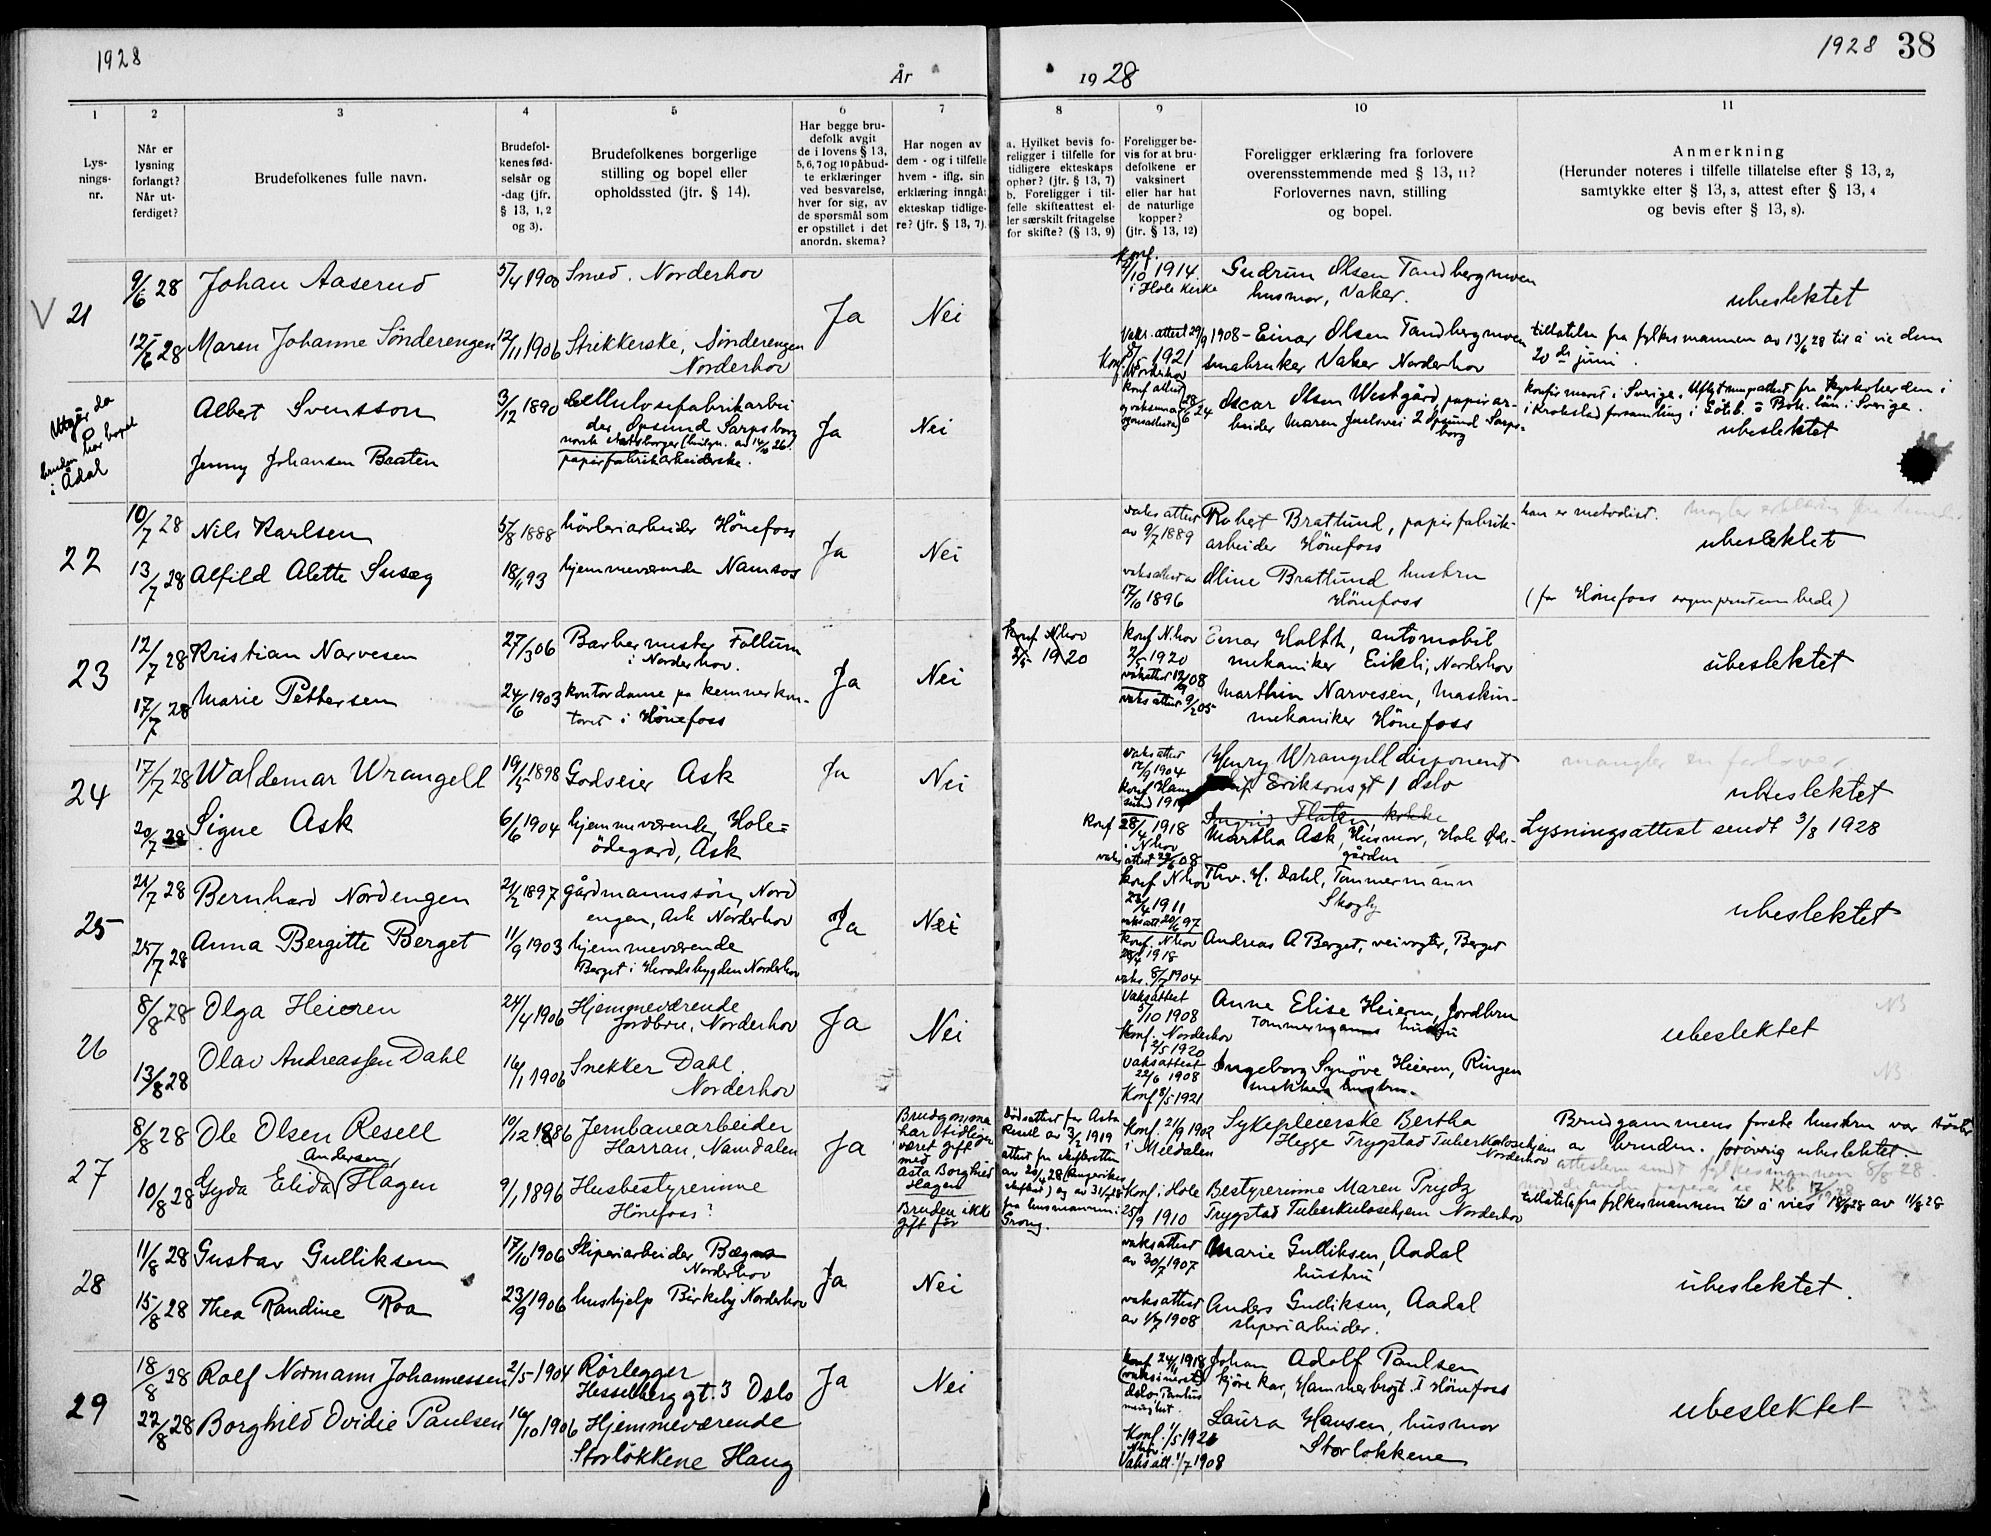 1928
År
1928
1928 38
1
2
3
4
5
6
7
8
9
10
11
Lys-
nings-
nr.
Når er
lysning
forlangt?
Når ut-
ferdiget?
Brudefolkenes fulle navn.
Brudefol-
kenes fød-
selsår og
-dag (jfr.
§ 13, 1, 2
og 3).
Brudefolkenes borgerlige
stilling og bopel eller
opholdssted (jfr. § 14).
Har begge bru-
defolk avgit
de i lovens § 13,
5, 6, 7 og 10 påbud-
te erklæringer
ved besvarelse,
hver for sig, av
de spørsmål som
er opstillet i det
anordn. skema?
Har nogen av
dem - og i tilfelle
hvem - iflg. sin
erklæring inngå
ekteskap tidlige-
re? (jfr. § 13, 7).
a. Hvilket bevis fo-
religger i tilfelle for
tidligere ekteskaps
ophør? (jfr. § 13, 7)
b. Foreligger i til-
felle skifteattest el-
ler særskilt fritagelse
for skifte? (§ 13, 9)
Foreligger be-
vis for at bru-
defolkene er
vaksinert
eller har hat
de naturlige
kopper?
(jfr. § 13, 12)
Foreligger erklæring fra forlovere
overensstemmende med § 13, 11?
Forlovernes navn, stilling
og bopel.
Anmerkning
(Herunder noteres i tilfelle tillatelse efter § 13, 2,
samtykke efter § 13, 3, attest efter § 13, 4
og bevis efter § 13, 8).
V 21
9/6 28
Johan Aaserud
5/4 1900
Smed. Norderhov
12/6 28
Maren Johanne Sønderengen
12/11 1906
Strikkerske, Sønderengen
Norderhov
Ja
Nei
Konf.
/10 1914
i Hole kirke
Gudrun Olsen Tandbergmoen
husmor, Vaker.
ubeslektet
Vaks. attest 29/9 1908
Konf. 8/5 1921
Norderhov
Einar Olsen Tandbergmoen
småbruker Vaker Norderhov
tillatelse fra fylkesmannen av 13/6 28 til å vie dem
20 de juni.
Utgår da
bruden har bopel
i Ådal
Albert Svensson
3/12 1890
Cellulosefabrikarbei
der Opsund Sarpsborg
norsk statsborger
Jenny Johansen Braaten
papirfabrikarbeiderske.
Ja
Nei
konf attest
28/6 24
Oscar Olsen Westgård, papirar-
beider Maren Juelsvei 2 Opsund Sarps-
borg
konfirmeret i Sverige. Utflytningsattest fra Kyrkoherden i
i Krokstad forsamling i Göteb. o Boh. län i Sverige.
ubeslektet
22
10/7 28
Nils Karlsen
5/8 1888
arbeider Hönefoss
13/7 28
Alfild Alette Susæg
18/1 93
hjemmeværende Namsos
Ja
Nei
vaks attest
av 9/7 1889
Robert Bratlund, papirfabrik-
arbeider Hönefoss
han er metodist.
ubeslektet
vaksattest av
17/10 1896
Oline Bratlund hustru
Hönefoss
(for Hönefoss sogneprestembede)
23
12/7 28
Kristian Narvesen
27/3 06
Barbermester Follum
i Norderhov.
17/7 28
Marie Pettersen
24/6 1903
kontordame på kemnerkon-
toret i Hönefoss
Ja
Nei
konf N.hov
2/5 1920
konf N.hov
2/5 1920
vaksattest 12/9 08
vaksattest 9/2 05
Einar Holth, automobil
mekaniker Eikli, Norderhov
Marthin Narvesen, maskin-
mekaniker Hönefoss
ubeslektet
24
17/7 28
Waldemar Wrangell
19/5 1898
Godseier Ask
20/7 28
Signe Ask
6/6 1904
hjemmeværende, Hole-
ödegard, Ask
Ja
Nei
vaksattest
12/9 1904
konf Ham
sund
Henry Wrangell disponent
Eriksonsgt 1 Oslo
Ingrid Flaten, kokke
mangler en forlover
ubeslektet
konf 28/4 1918
i N.hov
vaks attest 22/6 08
Martha Ask, Husmor, Hole öde-
gården
Lysningsattest sendt 3/8 1928
25
21/7 28
Bernhard Nordengen
21/2 1897
gårdmannssön, Nord
engen, Ask Norderhov
25/7 28
Anna Bergitte Berget
11/9 1903
hjemmeværende
Berget i Heradsbygden Norderhov
Ja
Nei
konf N.hov
23/4 1911
vaksatt. 20/6 97
konf. N.hov
28/4 1918
vaks. 8/7 1904
Thv. H. Dahl, Tömmermann
Skogly
Andreas A Berget, veivogter, Berget
ubeslektet
26
8/8 28
Olga Heieren
24/4 1906
Hjemmeværende
Jordbru, Norderhov
13/8 28
Olav Andreassen Dahl
16/1 1906
Snekker Dahl
Norderhov
Ja
Nei
Vaksattest
5/10 1908
Konf. Norderhov
2/5 1920
Vaksattest
22/6 1908
Konf 8/5 1921
Anne Elise Heieren, Jordbru
Tömmermanns hustru
Ingeborg Synöve Heieren, Ringen
snekkers hustru.
ubeslektet
NB
NB
27
8/8 28
Ole Olsen Resell
19/12 1886
Jernbanearbeider
Harran, Namdalen
10/8 28
Andersen
Gyda Elida Hagen
9/1 1896
Husbestyrerinne
Hönefoss?
Ja
Brudgomme
har tidliger
været gift
med
Asta Borghild
Hagen
Bruden ikke
gift för
Dödsattest for Asta
Resell av 3/2 1919
attest fra skifteretten
av 20/4 28 (Ringerike
skifteret) og av 31/7 28
fra husmannen i
Grong.
Konf. 21/9 1902
i Meldalen
Sykepleierske Bertha
Hegge Trygstad Tuberkulosehjem
Norderhov
Brudgommens forste hustru var söster
av bruden. forövrig ubeslektet.
attesten sendt fylkesmannen 8/8 28.
Konf. i Hole
25/9 1910
Bestyrerinne Maren Prydz
Trygstad Tuberkulosehjem Norderhov
tillatelse fra fylkesmannen til å vies 18/8 28 av 11/8 28
28
11/8 28
Gustav Gulliksen
17/10 1906
Sliperiarbeider Bægna
Norderhov
15/8 28
Thea Randine Roa
23/9 1906
hushjelp Birkeby Norderhov
Ja
Nei
vaksattest
av 30/7 1907
Marie Gulliksen, Aadal
hustru
vaksattest
av 1/7 1908
Anders Gulliksen, Aadal
sliperiarbeider.
ubeslektet.
29
18/8 28
Rolf Normann Johannessen
2/5 - 1904
Rörlegger
Hesselberg gt. 3 Oslo
22/8 28
Borghild Ovidie Paulsen
16/10 1906
Hjemmeværende
Storlökkene Haug
Ja
Nei
konf 24/4 1918
(vaksineret)
Oslo Paulus
menighet.
Konf. 1/5 1921
N.hov
Vaksatt. 1/7 1908
Johan Adolf Paulsen
kjörekar, Hammerbrogt. I Hönefoss
Laura Hansen, husmor
Storlökkene
ubeslektet